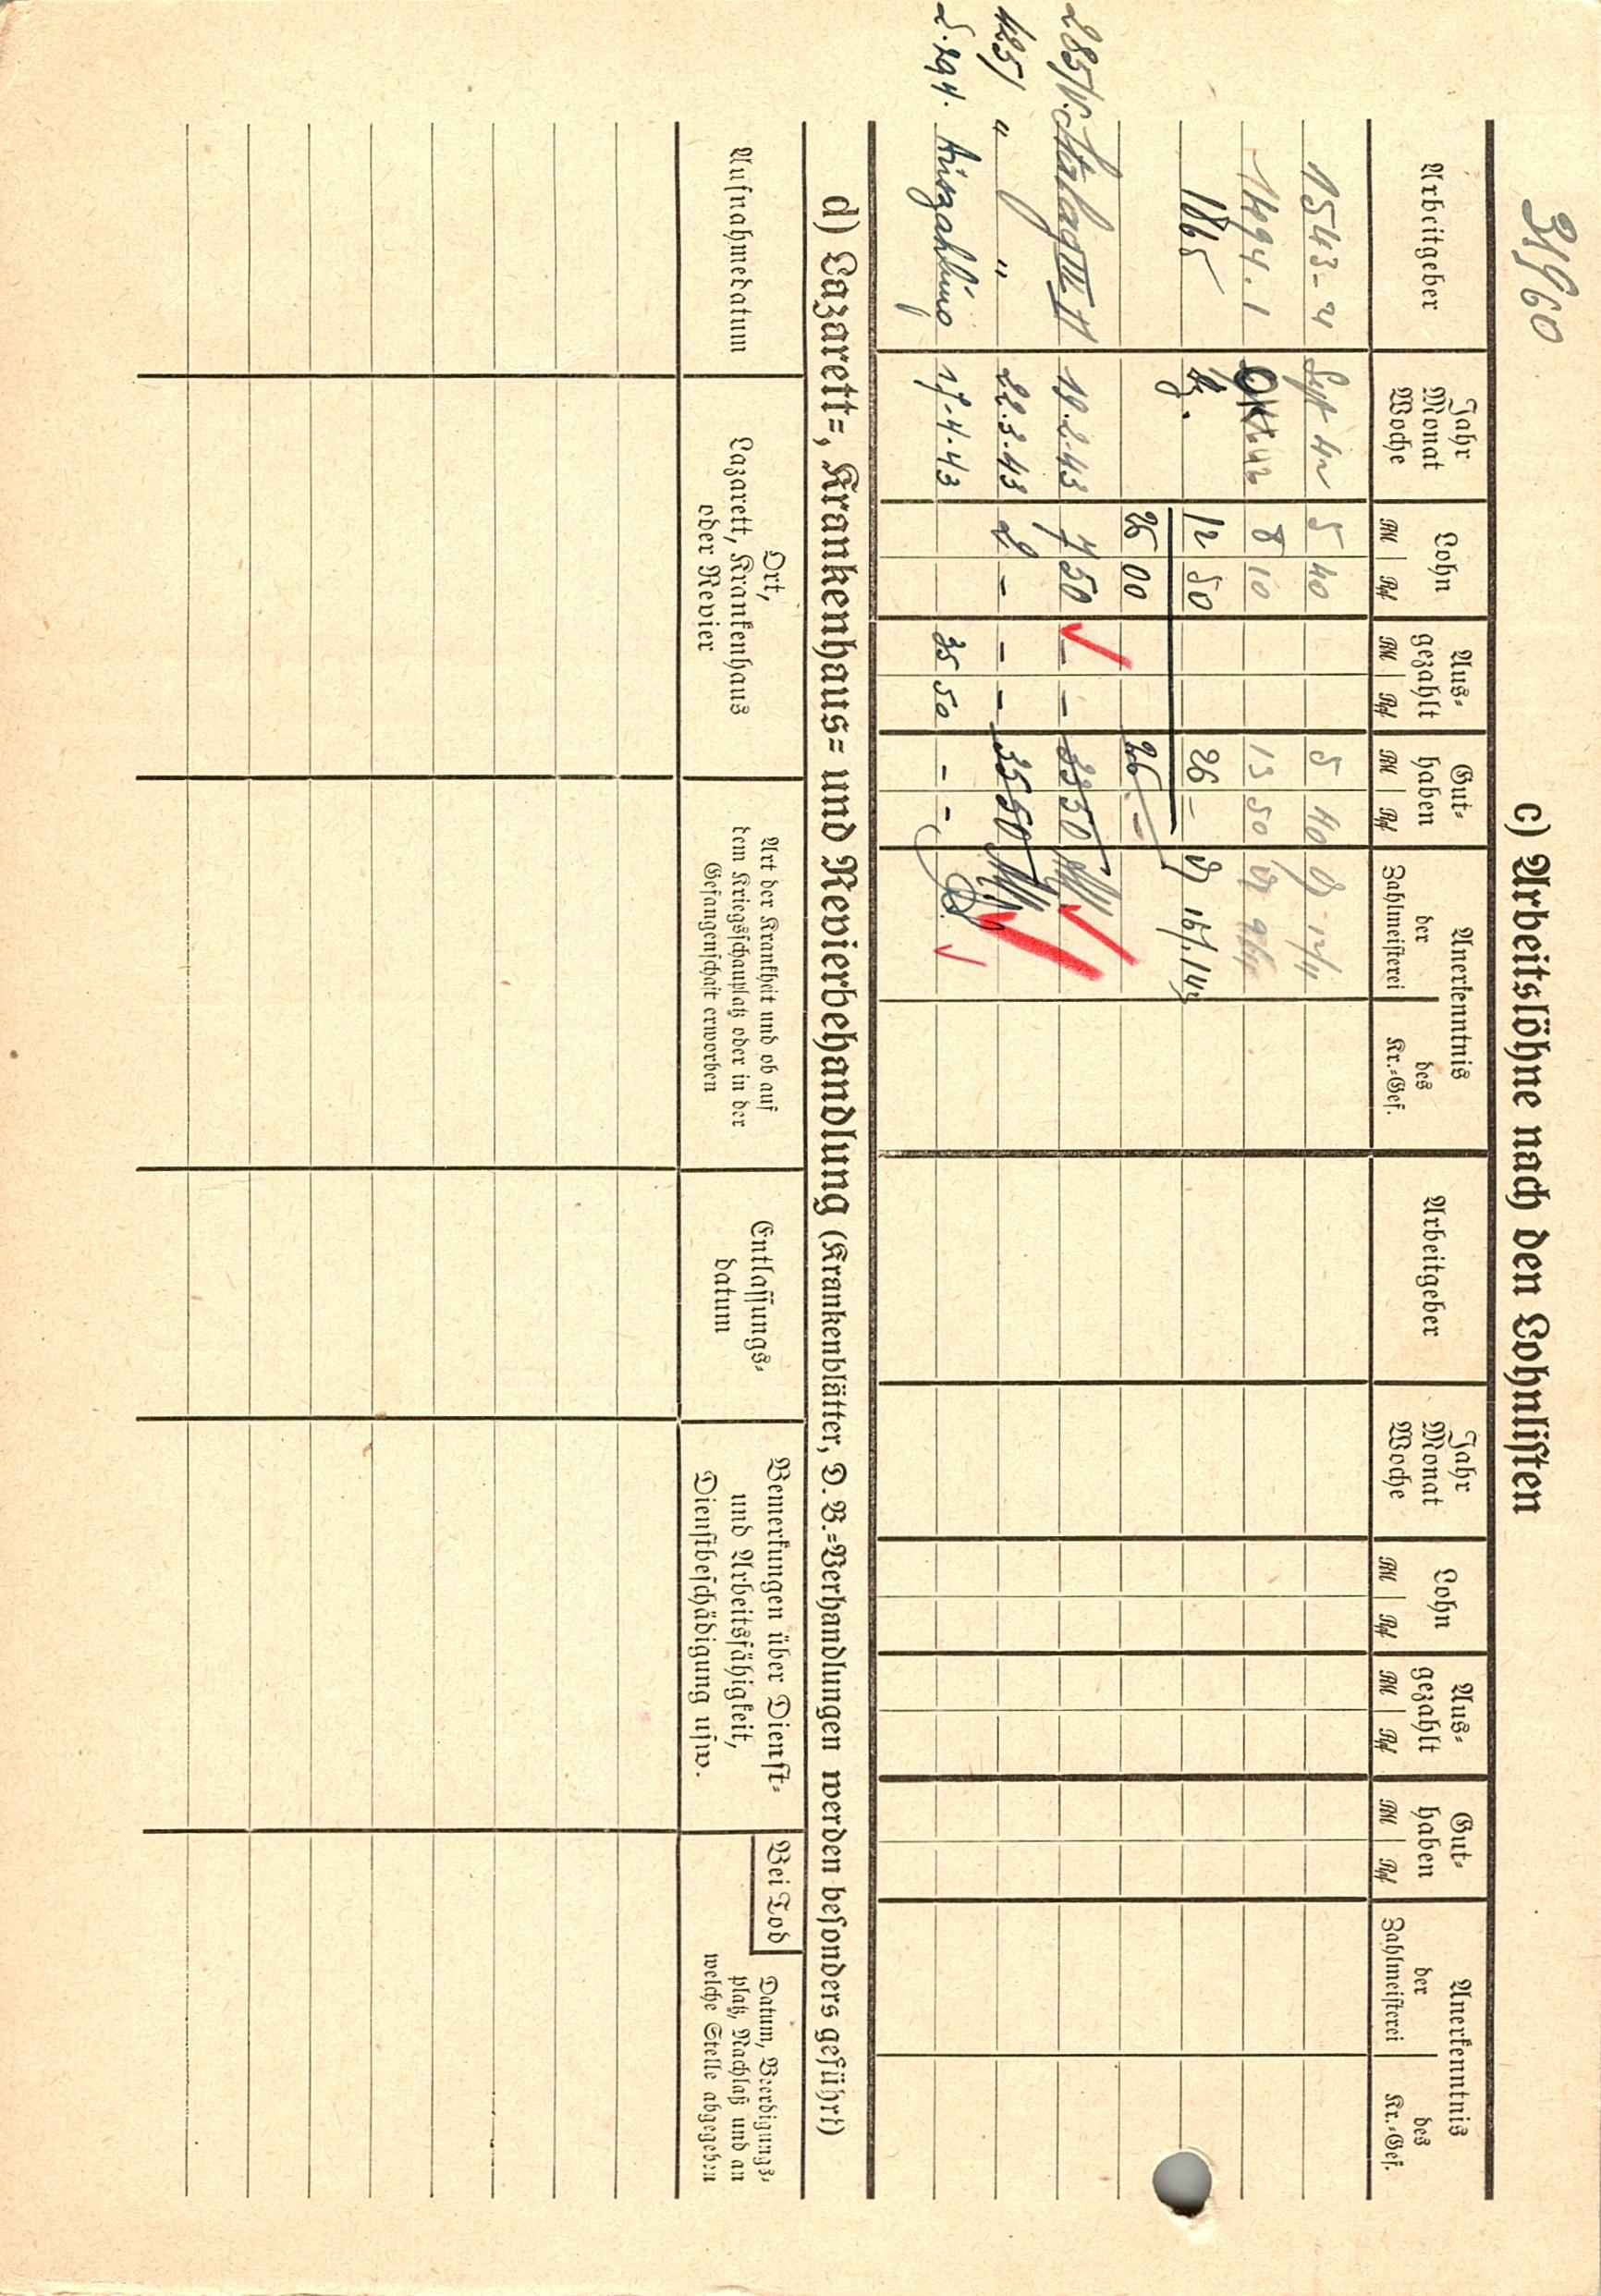 31660
c) Arbeitslöhne nach den Lohnlisten
Arbeitgeber | Jahr Monat Woche | Lohn RM Rpf | Aus-gezahlt RM Rpf | Gut-haben RM Rpf | Anerkenntnis der Zahlmeisterei | des Kr.-Gef. | Arbeitgeber | Jahr Monat Woche | Lohn RM Rpf | Aus-gezahlt RM Rpf | Gut-haben RM Rpf | Anerkenntnis der Zahlmeisterei | des Kr.-Gef.
1543-4 | Sept 42 | 5 40 | 5 40
1494.1 | Okt 42 | 8 10 | 13 50
1865 | 12 50 | 26 –
26 00 | 26 –
285/ Stalag | 19.2.43 | 7 50 | – – | 33 50
425/ " " | 22.3.43 | 2 – | – – | 35 50
294. Auszahlung | 17.4.43 | 35 50 | – –
d) Lazarett-, Krankenhaus- und Revierbehandlung (Krankenblätter, D.B.-Verhandlungen werden besonders geführt)
Aufnahmedatum
Ort,
Lazarett, Krankenhaus
oder Revier
Art der Krankheit und ob auf
dem Kriegsschauplatz oder in der
Gefangenschaft erworben
Entlassungs-
datum
Bemerkungen über Dienst-
und Arbeitsfähigkeit,
Dienstbeschädigung usw.
Bei Tod
Datum, Beerdigungs-
platz, Nachlaß und an
welche Stelle abgegeben